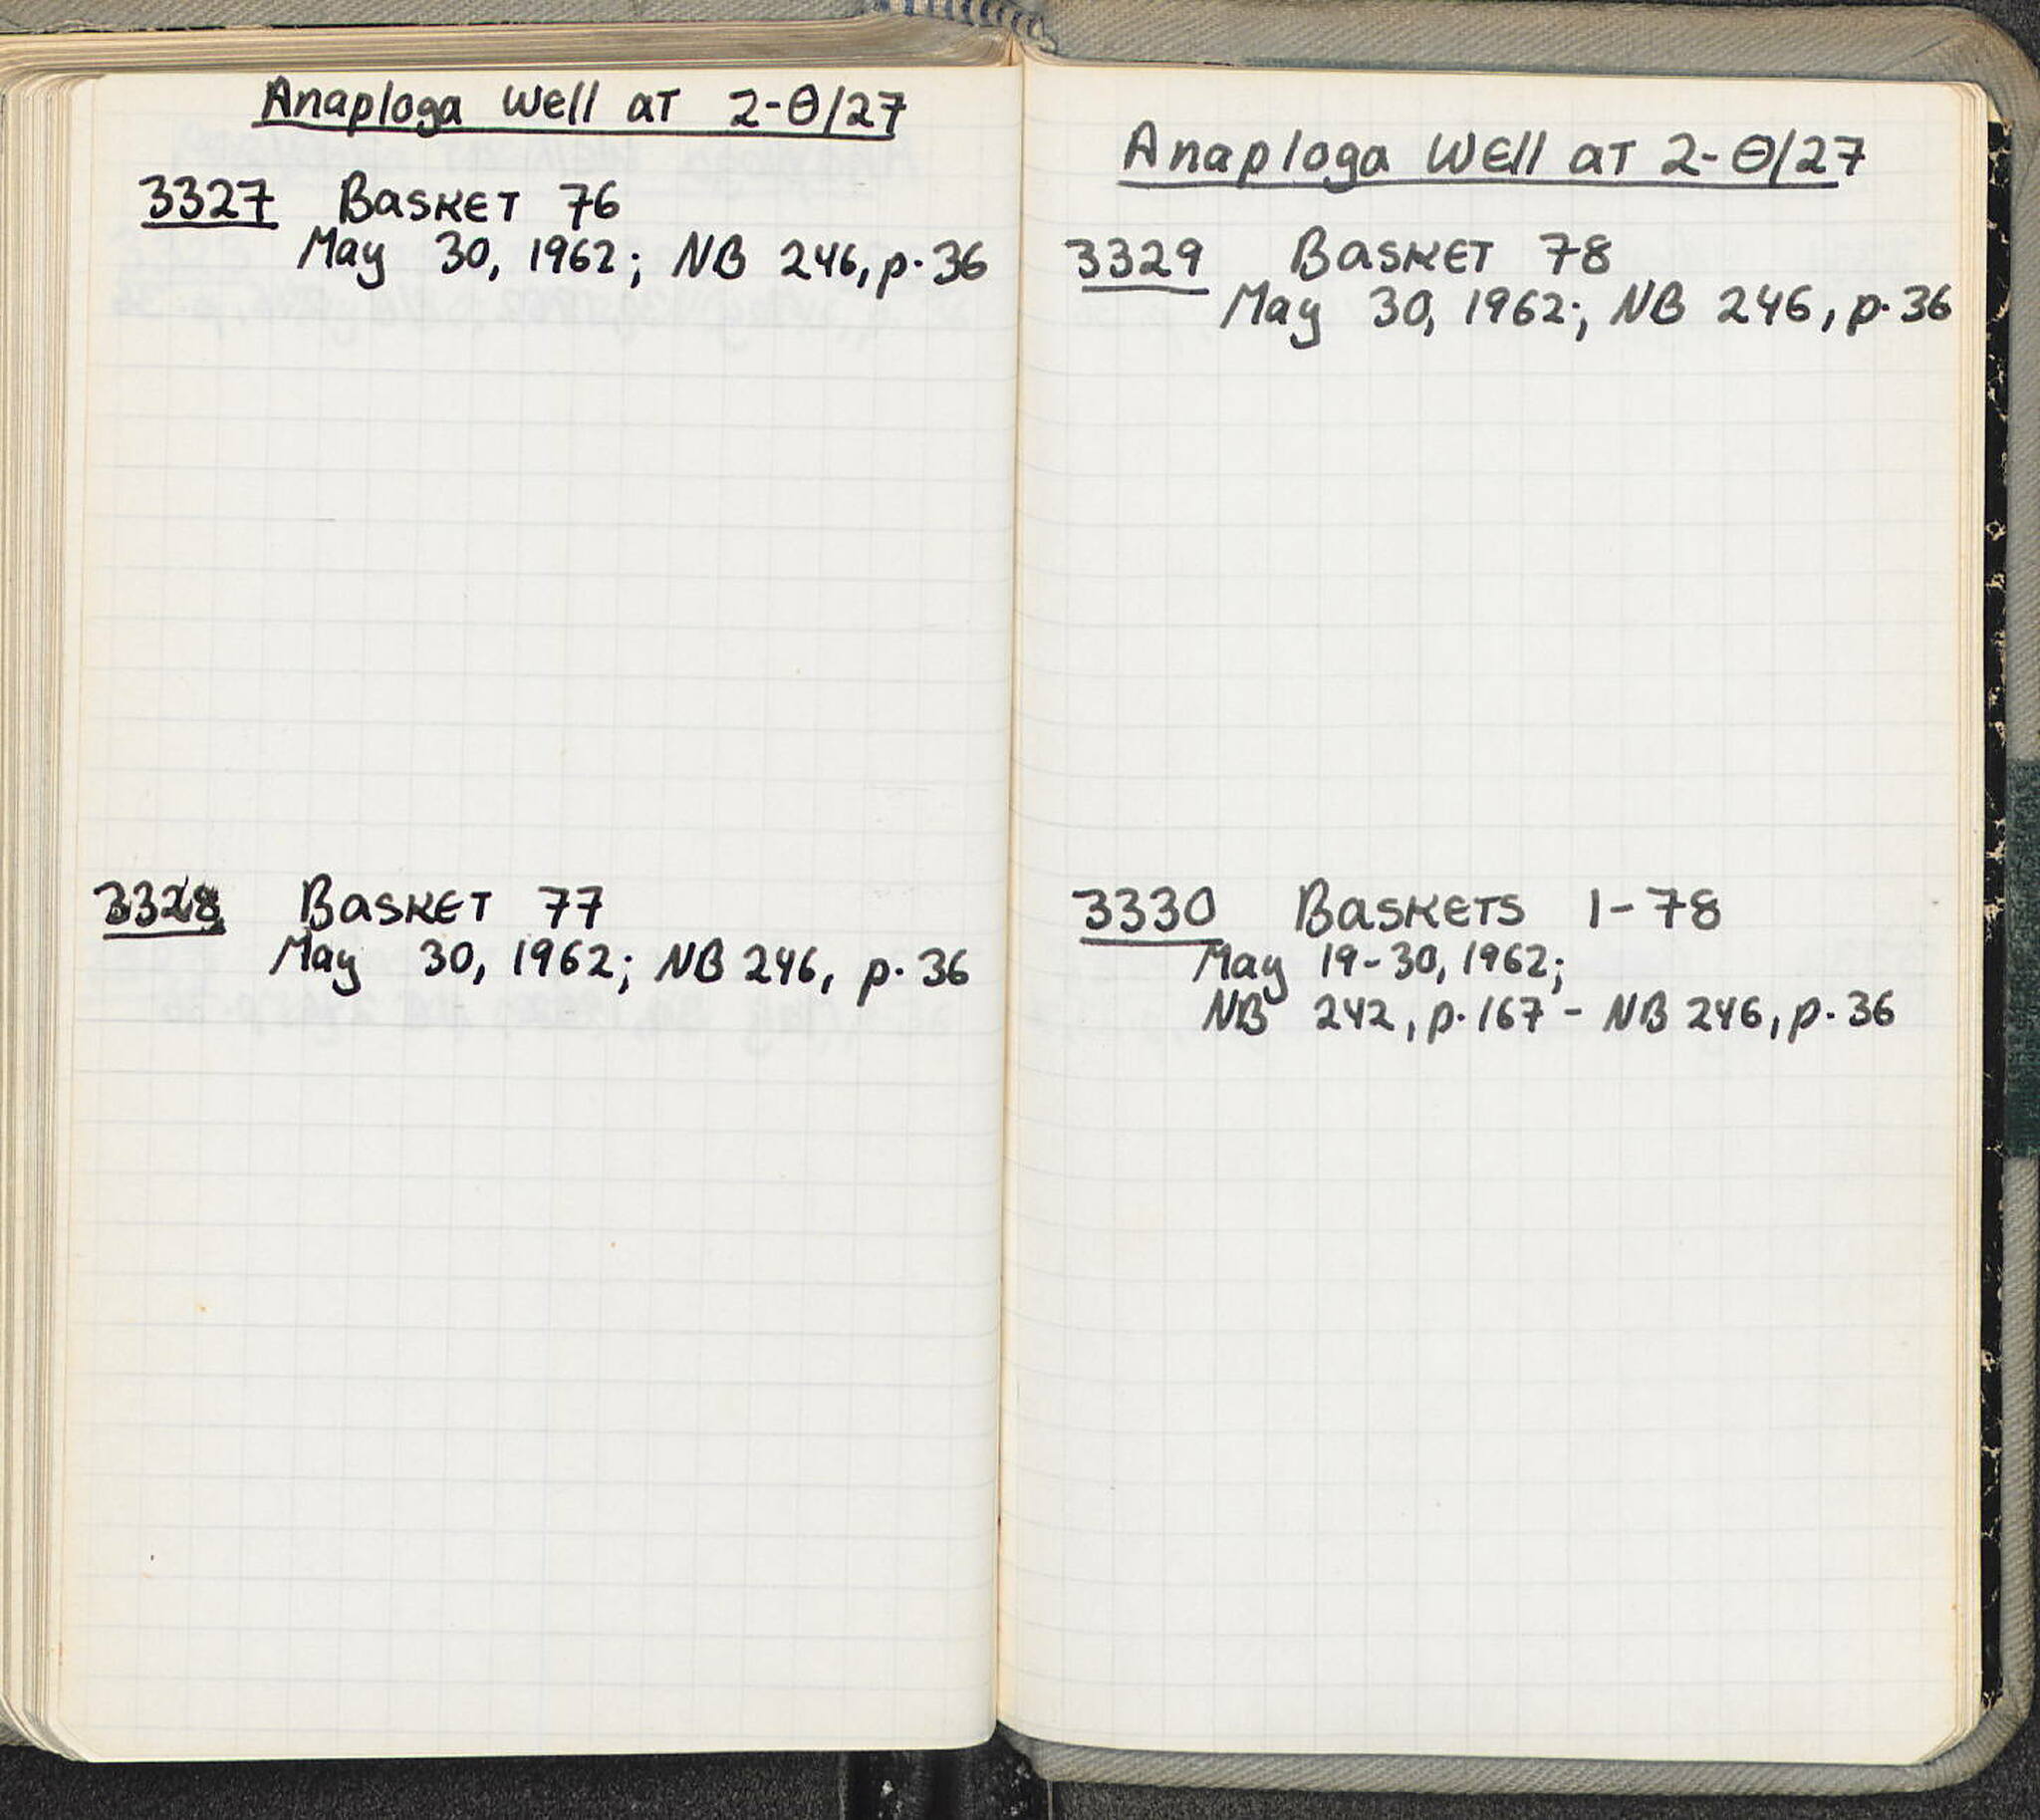 Anaploga Well at 2-Θ/27
3327 Basket 76
May 30, 1962; NB 246, p. 36
3328 Basket 77
May 30, 1962; NB 246, p. 36
Anaploga Well at 2-Θ/27
3329 Basket 78
May 30, 1962; NB 246, p. 36
3330 Baskets 1-78
May 19-30, 1962;
NB 242, p. 167 - NB 246, p. 36